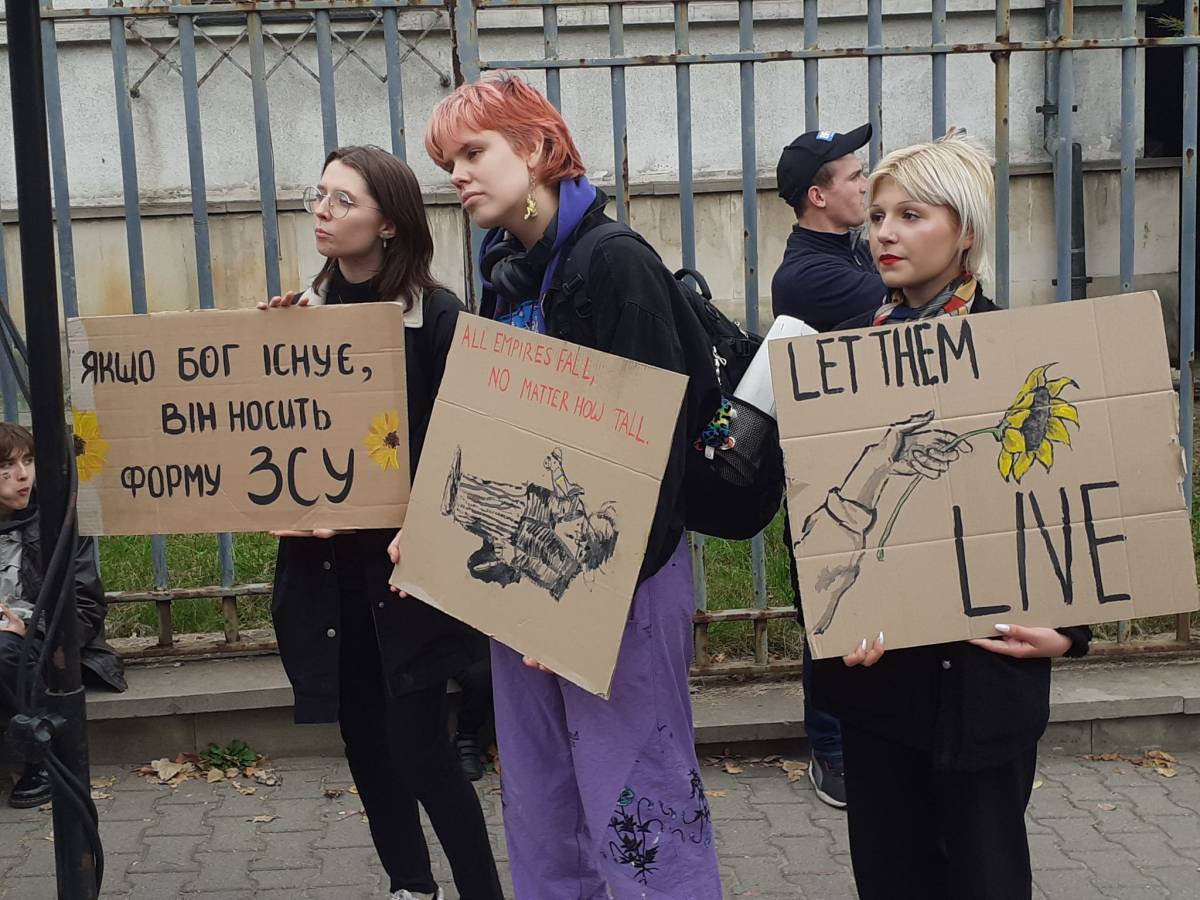 ЯКЩО БОГ ІСНУЄ,
ВІН НОСИТЬ
ФОРМУ ЗСУ
ALL EMPIRES FALL,
NO MATTER HOW TALL.
LET THEM
LIVE